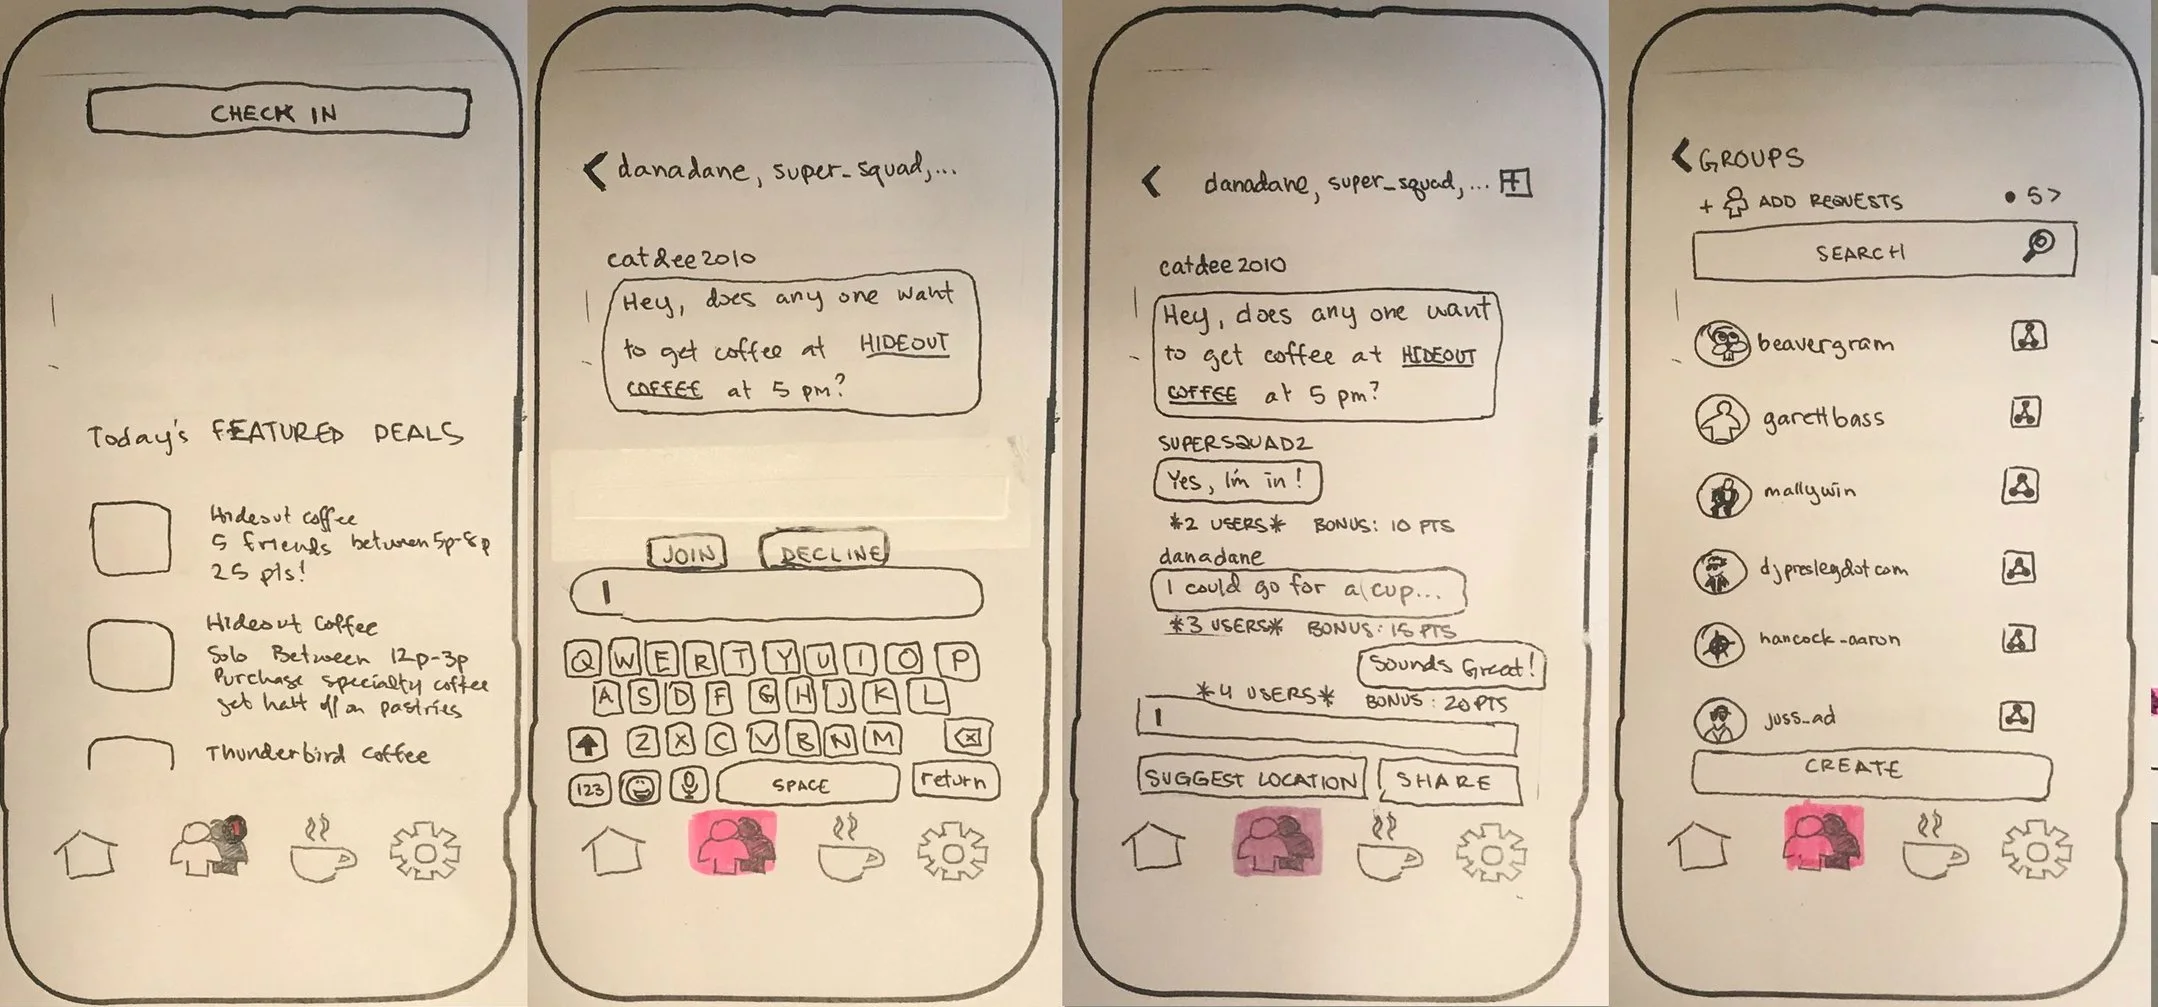 CHECK IN
Today's FEATURED DEALS
Hideout coffee
5 friends between 5p-8p
25 pts!
Hideout Coffee
Solo Between 12p-3p
Purchase specialty coffee
get half off on pastries
Thunderbird Coffee
danadane, super_squad,...
catdee2010
Hey, does any one want
to get coffee at HIDEOUT
COFFEE at 5 pm?
JOIN DECLINE
Q W E R T Y U I O P
A S D F G H J K L
Z X C V B N M
123 SPACE return
danadane, super_squad,... +
catdee2010
Hey, does any one want
to get coffee at HIDEOUT
COFFEE at 5 pm?
SUPERSQUAD2
Yes, I'm in!
*2 USERS* BONUS: 10 PTS
danadane
I could go for a cup...
*3 USERS* BONUS: 15 PTS
Sounds Great!
*4 USERS* BONUS: 20 PTS
SUGGEST LOCATION SHARE
GROUPS
+ ADD REQUESTS • 5>
SEARCH
beavergram
garettbass
mallywin
djpreslegdotcom
hancock-aaron
juss_ad
CREATE